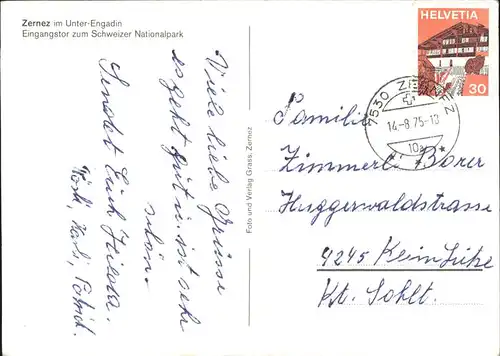 Zernez im Unter-Engadin
Eingangstor zum Schweizer Nationalpark
Viele liebe Grüsse
es geht gut u. ist sehr
schön.
Sendet Euch
Foto und Verlag Grass, Zernez
HELVETIA
30
7530 ZERNEZ
14-8 75-18
10a
Familie
Zimmerli Borer
Huggerwaldstrasse
4245 Kleinlützel
Kt. Solth.